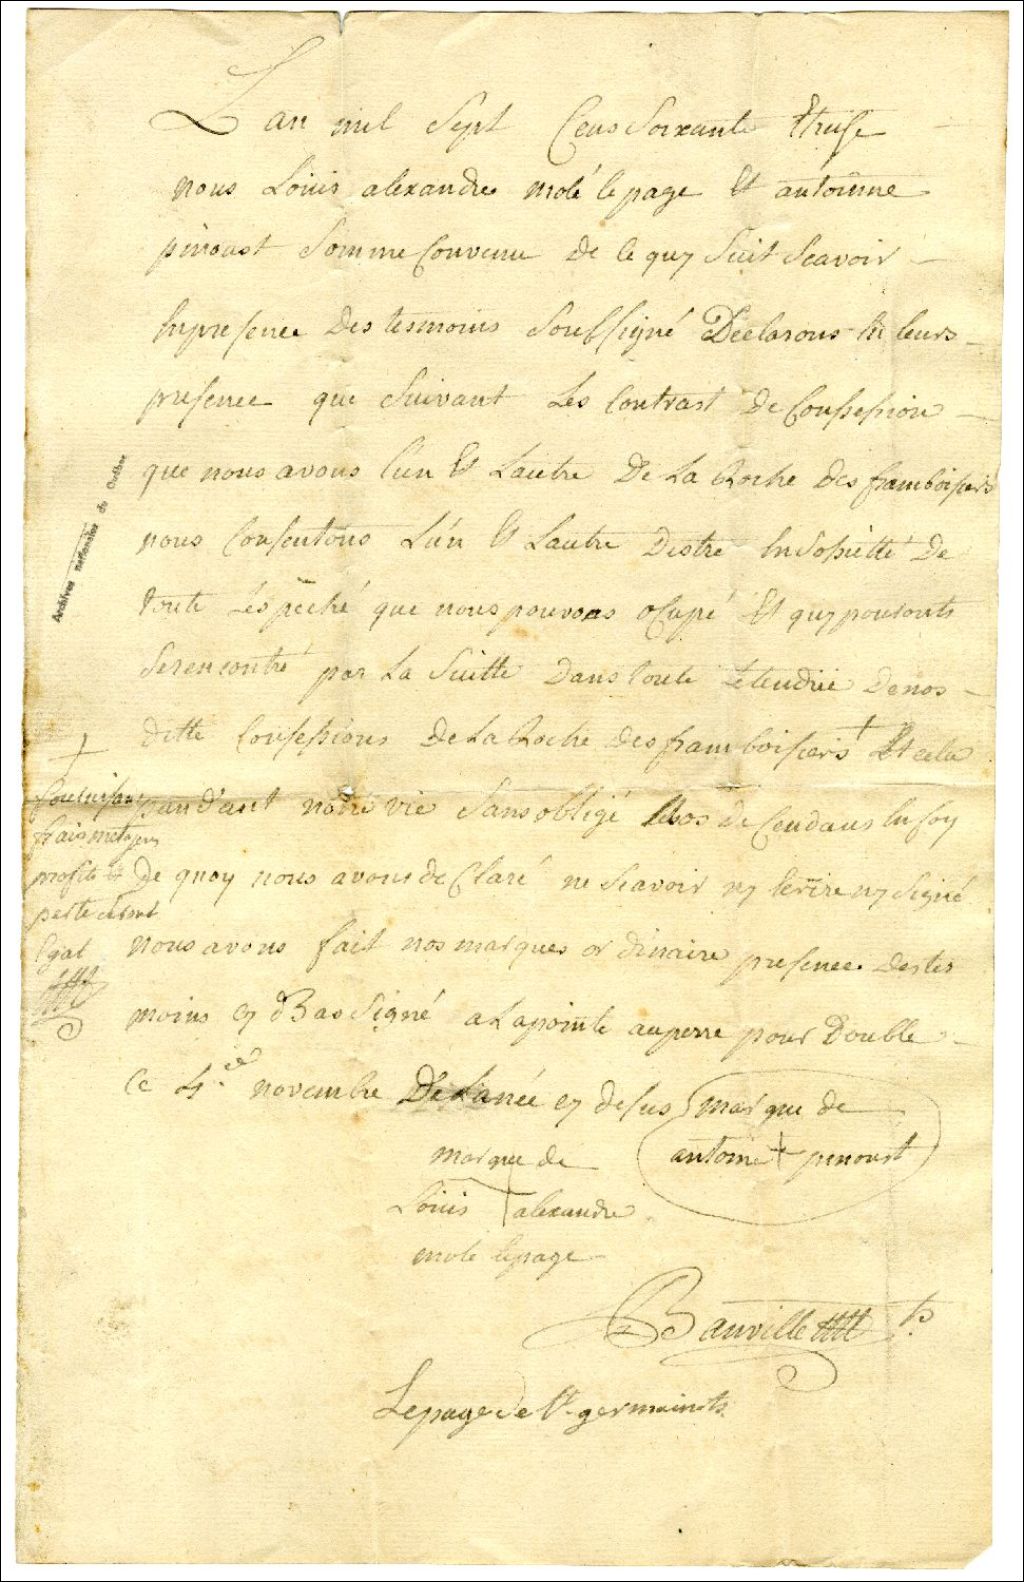 L an mil sept Cens soixante & truse
nous Louis alexandre molé le page Et antoinne
pinoust somme Convenu de ce quy suit scavoir
En presence Des tesmoins soubssigné Déclarons En leurs
presence que suivant Les Contrast De Consession
que nous avons l'un Et Lautre De La Roche Des framboisiers
nous Consentons L'un Et Lautre Destre En sosietté De
toute Les peché que nous pouvons ocupé Et quy pouronts
se rencontré par La suitte Dans toute Létendüe De nos
ditte Consessions De La Roche Des framboisiers + Et cela
pand'ant notre vie sans obligé Nos desendans En foy
De quoy nous avons de Claré ne scavoir ny Ecrire ny signé
nous avons fait nos marques ordinaire presence Des tes
moins cy Bas signé a La pointe au perre pour Double
Ce 4.e novembre De Lanée cy desus
marque de
antoine + pinoust
marque de
Louis alexandre
mole lepage
Banville ts
Lepage de St germain ts
+
frais
profits et
perte seront
Egal
Archives nationales du Québec